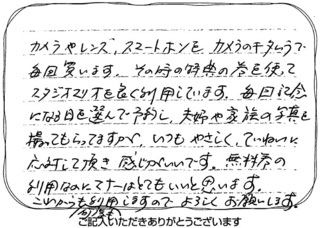 カメラやレンズ、スマートホンを、カメラのキタムラで
毎回買います。その時の特典の券を使って
スタジオマリオを良く利用しています。毎回記念
になる日を選んで予約し、夫婦や家族の写真を
撮ってもらってますが、いつもやさしく、ていねいに
応対して頂き感じがいいです。無料券の
利用なのにマナーはとてもいいと思います。
これからも利用しますので よろしくお願いします。
ご記入いただきありがとうございます